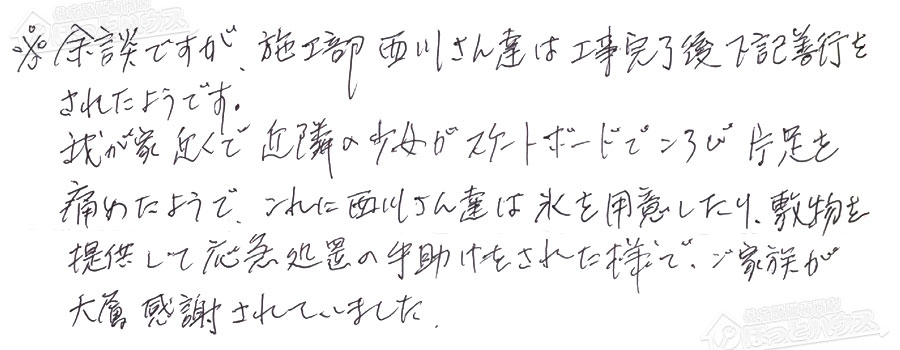 ※余談ですが、施工部 西川さん達は工事完了後下記善行を
されたようです。
我が家近くで近隣の少女がスケートボードでころび片足を
痛めたようで、これに西川さん達は氷を用意したり、敷物を
提供して応急処置の手助けをされた様で、ご家族が
大層感謝されていました.